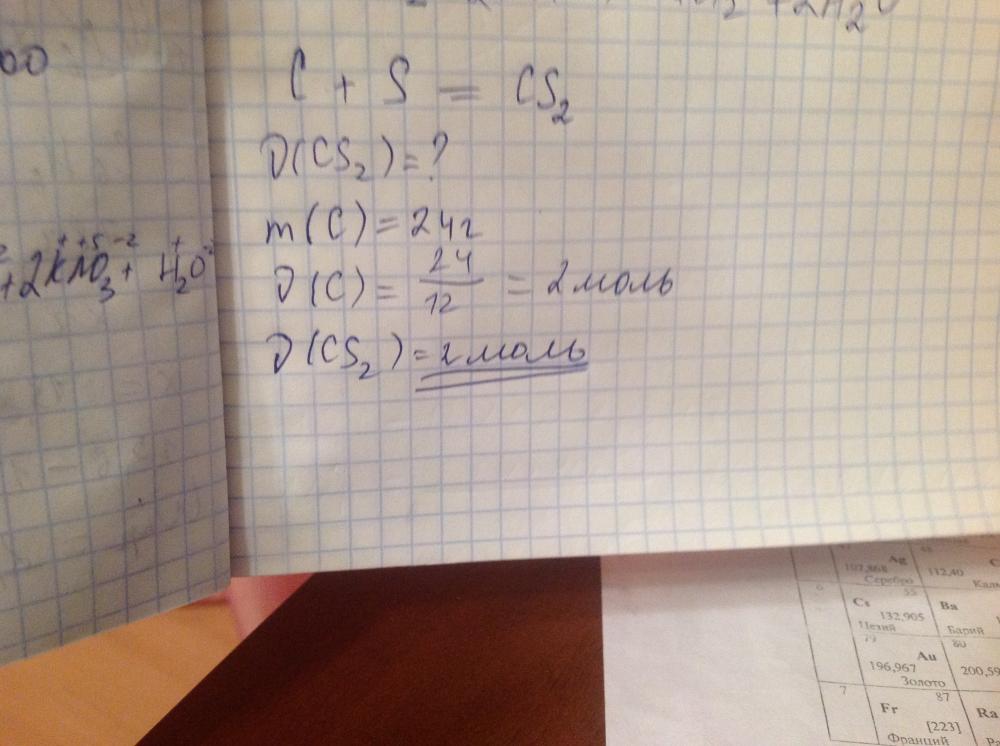 +2H₂O
00
C + S = CS₂
D(CS₂)=?
m(C)=24г
+2KNO₃+ H₂O
D(C)= 24/12 = 2моль
D(CS₂)=2моль
Ag
107,868
Серебро
112,40
6
55
Cs
132,905
Цезий
Ba
Барий
79
Au
196,967
Золото
80
200,59
7
87
Fr
[223]
Франций
Ra